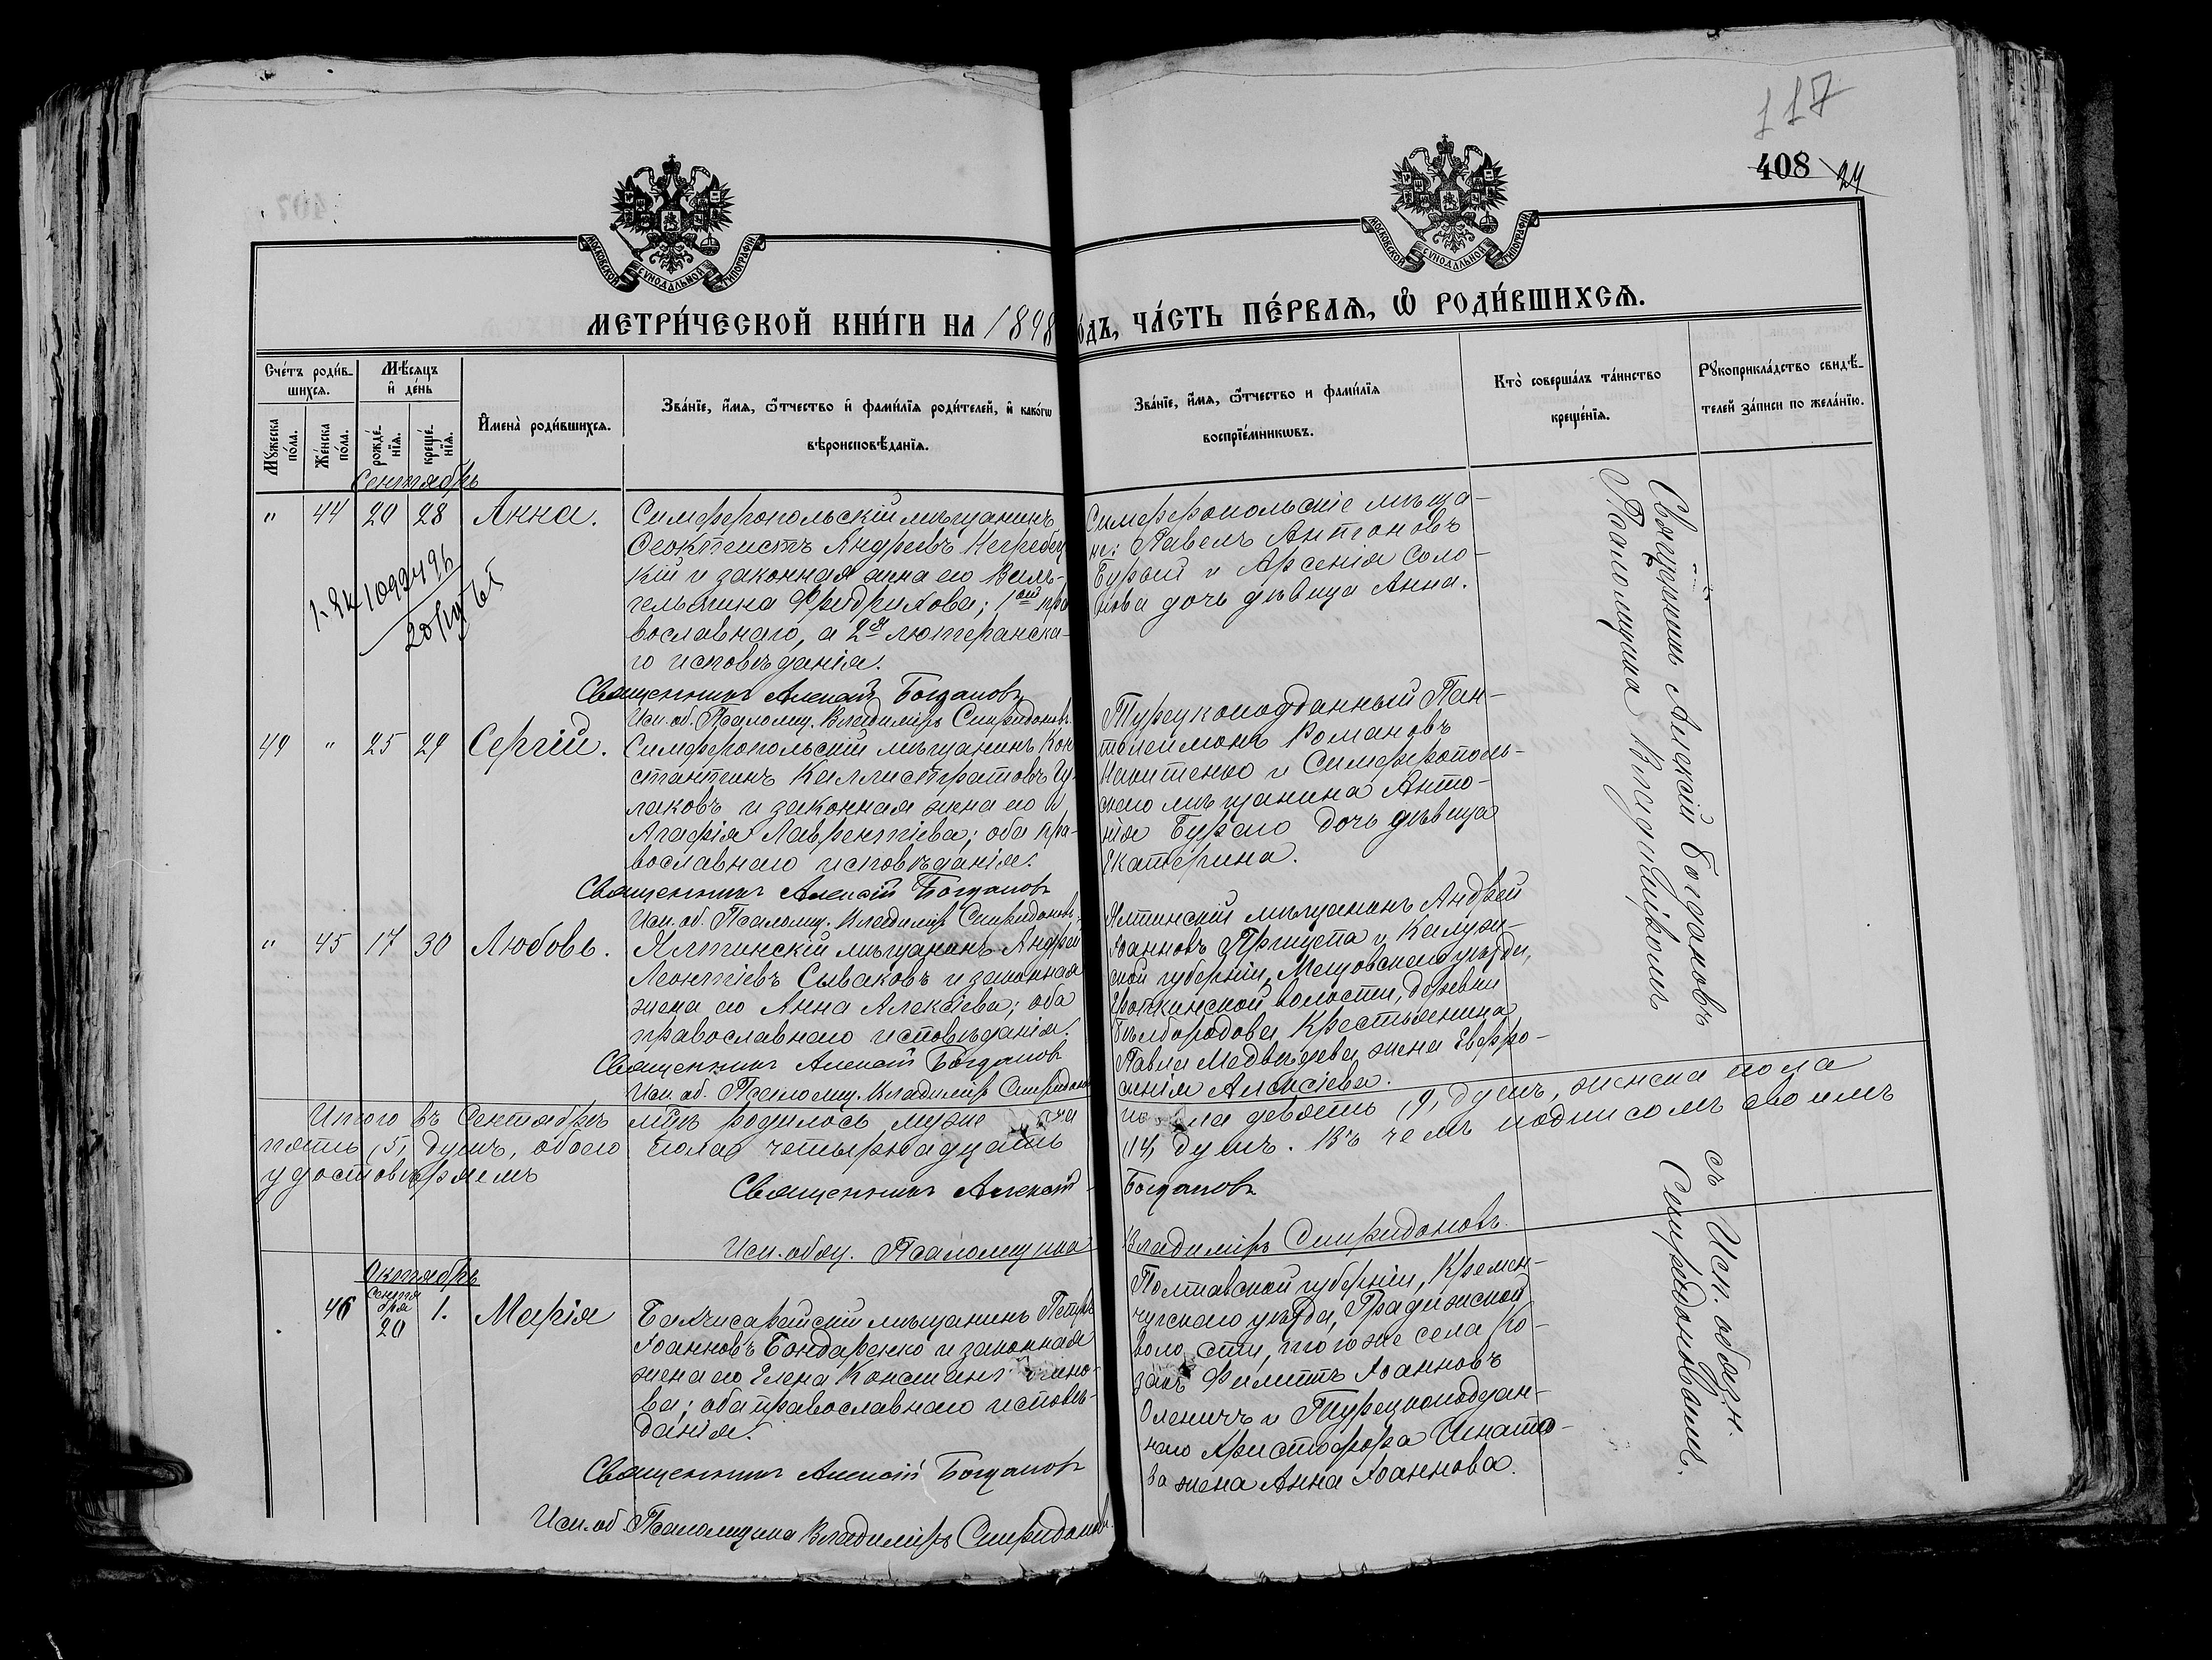 117
408 24
МОСКОВСКОЙ СѴНОДАЛЬНОЙ ТИПОГРАФІИ
МОСКОВСКОЙ СѴНОДАЛЬНОЙ ТИПОГРАФІИ
МЕТРИ́ЧЕСКОЙ КНИ́ГИ НА 1898 ГО́ДЪ, ЧА́СТЬ ПЕ́РВАѦ, Ѡ҆ РОДИ́ВШИХСѦ.
Сче́тъ роди́в-
шихсѧ.
Мꙋ́жеска по́ла.
Же́нска по́ла.
Мѣ́сѧцъ
и҆ де́нь
рожде́-
нїѧ.
креще́-
нїѧ.
И҆мена̀ роди́вшихсѧ.
Зва́нїе, и҆́мѧ, ѻ҆́тчество и҆ фами́лїѧ роди́телей, и҆ како́гѡ
вѣроисповѣ́данїѧ.
Зва́нїе, и҆́мѧ, ѻ҆́тчество и фами́лїѧ
воспрїе́мникѡвъ.
Кто̀ соверша́лъ та́инство
креще́нїѧ.
Рꙋкоприкла́дство свидѣ́-
телей за́писи по жела́нїю.
Сентябрь
" 44 20 28 Анна.
Симферопольскій мѣщанинъ
Ѳеоктистъ Андреевъ
кій и законная жена его Виль-
гельмина Фридрихова; 1ый пра
вославнаго, а 2я лютеранска-
го исповѣданія.
Священникъ Алексій Богдановъ
Исп. об. Псаломщ. Владиміръ Спиридоновъ
Симферопольскіе мѣща-
не: Павелъ Антоновъ
Бурый и Арсенія Соло-
дочь дѣвица Анна.
49 " 25 29 Сергій.
Симферопольскій мѣщанинъ Кон
стантинъ Каллистратовъ Гу
лаковъ и законная жена его
Агафія Лаврентіева; оба пра-
вославнаго исповѣданія.
Священникъ Алексій Богдановъ
Исп. об. Псаломщ. Владиміръ Спиридоновъ
Турецкоподданный Пан-
телеимонъ Романовъ
Никитенко и Симферополь-
скаго мѣщанина Анто-
нія Бураго дочь дѣвица
Екатерина.
" 45 17 30 Любовь.
Ялтинскій мѣщанинъ Андрей
Леонтіевъ Сываковъ и законная
жена его Анна Алексіева; оба
православнаго исповѣданія.
Священникъ Алексій Богдановъ
Исп. об. Псаломщ. Владиміръ Спиридоновъ
Ялтинскій мѣщанинъ Андрей
Іоанновъ Пригуста и Калуж-
ской губерніи, Мещовскаго уѣзда,
волости, деревни
Бѣлобородова крестьянина
Павла Медвѣдева жена Евфро-
синія Алексіева.
Итого въ Сентябрѣ мцѣ родилось муже
пола девять /9/ душъ, женска пола
пять /5/ душъ, обоего пола четырнадцать
/14/ душъ. Въ чемъ подписомъ своимъ
удостовѣряемъ
Священникъ Алексій Богдановъ
Исп. обяз. Псаломщика Владиміръ Спиридоновъ
Октябрь
46 Сентя
бря
20 1. Марія
Бахчисарайскій мѣщанинъ Петръ
Іоанновъ Бондаренко и законная
жена его Елена Константинно-
ва; оба православнаго исповѣ-
данія.
Священникъ Алексій Богдановъ
Исп. об. Псаломщика Владиміръ Спиридоновъ
Полтавской губерніи, Кремен-
чугскаго уѣзда, Градижской
волости, того же села Ко-
закъ Филиппъ Іоанновъ
Оленичъ и Турецкоподдан-
наго Христофора Игнато-
ва жена Анна Іоаннова.
Священникъ Алексій Богдановъ съ Исп. обязн.
Псаломщика Владиміромъ Спиридоновымъ.